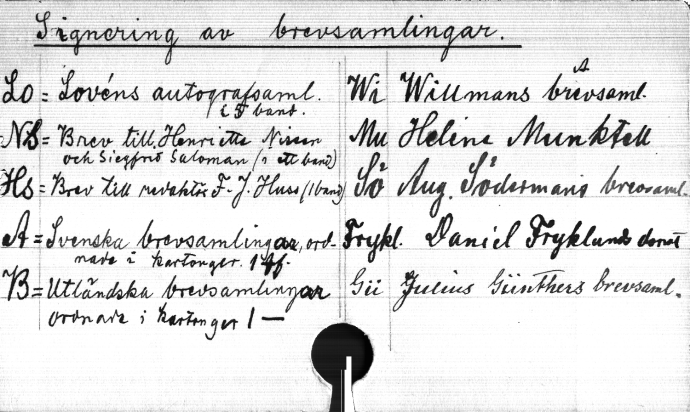 Signering av brevsamlingar.
Lo = Lovéns autografsaml.
i 5 band.
NS = Brev till Henriette Nissen
och Siegfrid Saloman (i ett band)
Hs = Brev till redaktör F. J. Huss (1 band)
A = Svenska brevsamlingar, ord-
nade i kartonger. 1
B = Utländska brevsamlingar
ordnade i kartonger 1 —
Wi Willmans brevsaml.
A
Mu Helena Munktell
Sö Aug. Södermans brevsaml.
Frykl. Daniel Fryklunds donat
Gü Julius Günthers brevsaml.